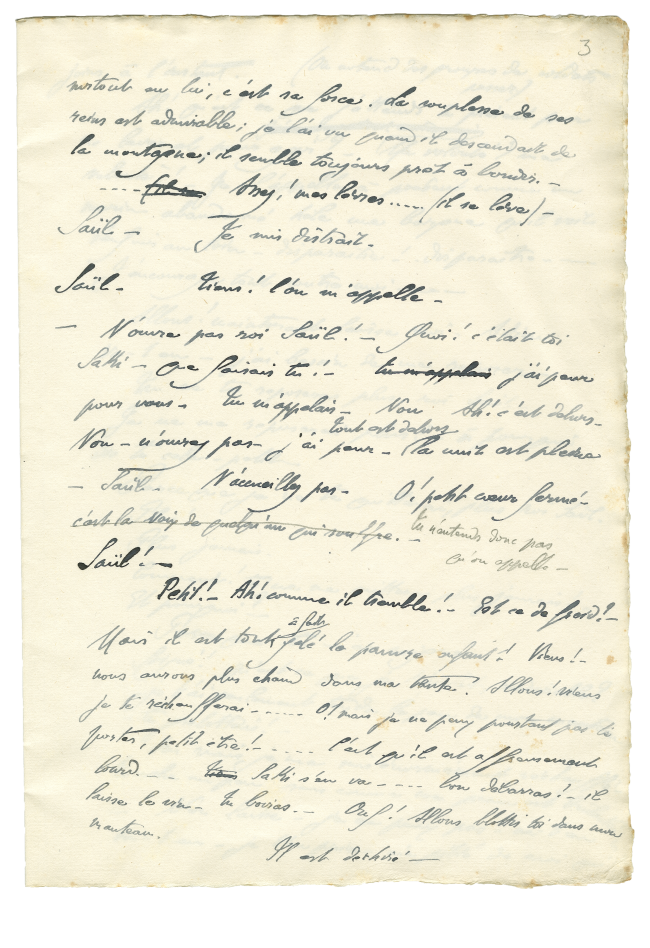 3
surtout en lui, c'est sa force. La souplesse de ses
reins est admirable; je l'ai vu quand il descendait de
la montagne; il semble toujours prêt à bondir. —
---- Assez! mes lèvres..... (il se lève) —
Saül — Je suis distrait.
Saül — Tiens! l'on m'appelle —
— N'ouvre pas roi Saül! — Quoi! c'était toi
Sakhi — que faisais tu! — tu m'appelais j'ai peur
pour vous — Tu m'appelais — Non Ah! c'est dehors —
tout est dehors
Non — n'ouvrez pas — j'ai peur — la nuit est pleine
— Saül — N'accueilles pas — O! petit cœur fermé —
c'est la voix de quelqu'un qui souffre. — tu n'entends donc pas
qu'on appelle —
Saül! —
Petit! — Ah! comme il tremble! — Est ce de froid! —
Mais il est tout gelé le pauvre enfant! Viens! —
nous aurons plus chaud dans ma tente. Allons! viens
je te réchaufferai ----- O! mais je ne peux pourtant pas te
porter, petit être! ----- C'est qu'il est affreusement
lourd. -- Sakhi s'en va ---- bon débarras! — il
laisse le vin — Tu boiras — Ouf! Allons blottis toi dans mon
manteau.
Il est déchiré —